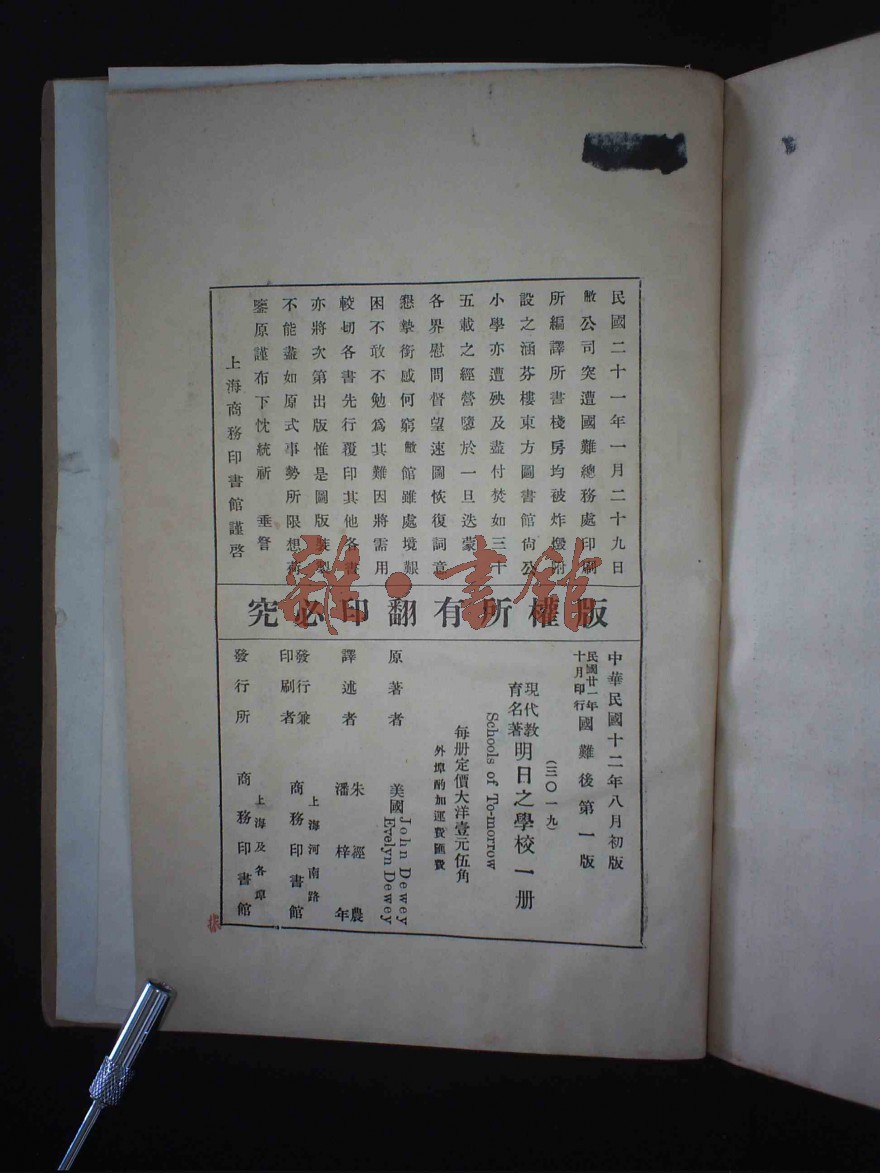 民國二十一年一月二十九日
敝公司突遭國難總務處印刷
所編譯所書棧房均被炸燬附
設之涵芬樓東方圖書館尙公
小學亦遭殃及盡付焚如三十
五載之經營隳於一旦迭蒙
各界慰問督望速圖恢復詞意
懇摯銜感何窮敝館雖處境艱
困不敢不勉爲其難因將需用
較切各書先行覆印其他各書
亦將次第出版惟是圖版裝製
不能盡如原式事勢所限想荷
鑒原謹布下忱統祈 垂詧
上海商務印書館謹啓
版權所有翻印必究
中華民國十二年八月初版
民國廿一年十月印行國難後第一版
(三〇一九)
現代教育名著明日之學校一册
Schools of To-morrow
每册定價大洋壹元伍角
外埠酌加運費匯費
原著者 美國 John Dewey
Evelyn Dewey
譯述者 朱經農
潘梓年
發行兼印刷者 上海河南路
商務印書館
發行所 上海及各埠
商務印書館
雜·書館